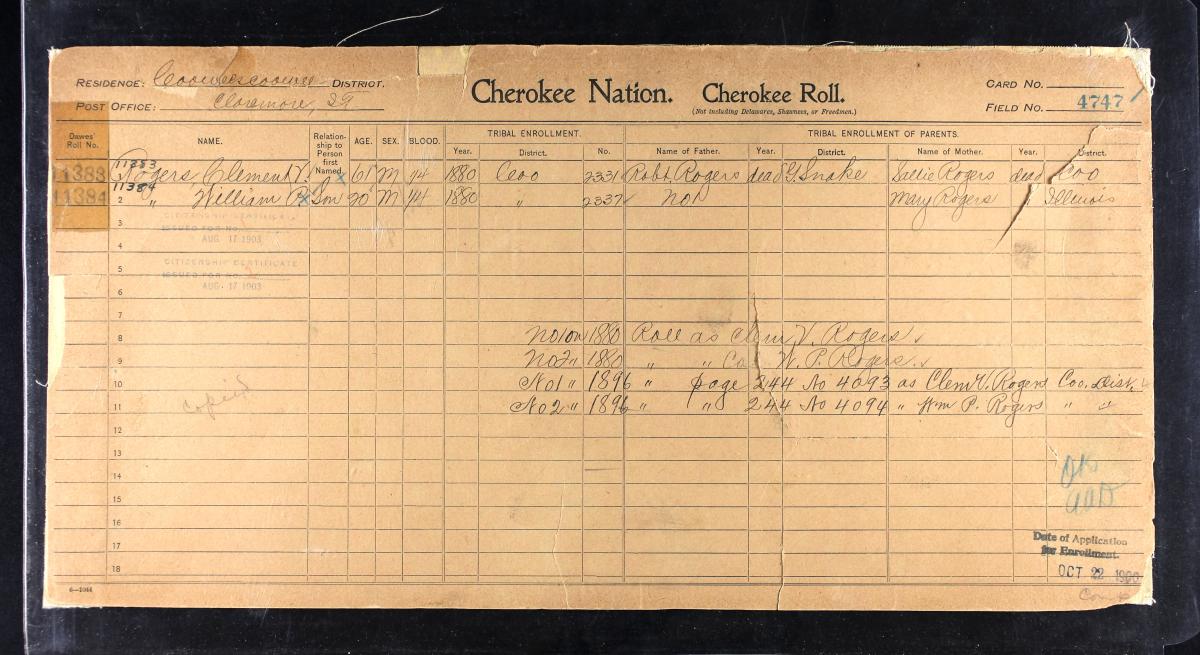 RESIDENCE: Cooweescoowee DISTRICT.
POST OFFICE: Claremore, IT
Cherokee Nation. Cherokee Roll.
(Not including Delawares, Shawnees, or Freedmen.)
CARD NO.
FIELD NO. 4747
Dawes' Roll No. NAME. Relationship to Person first Named. AGE. SEX. BLOOD. TRIBAL ENROLLMENT. TRIBAL ENROLLMENT OF PARENTS.
Year. District. No. Name of Father. Year. District. Name of Mother. Year. District.
11383 11383 Rogers, Clement V. 61 M 1/4 1880 Coo 2331 Robt Rogers dead G. Snake Sallie Rogers dead Coo
11384 11384 2 " William P. Son 20 M 1/4 1880 " 2337 No 1 Mary Rogers " Illinois
CITIZENSHIP CERTIFICATE
3 ISSUED FOR NO.
AUG 17 1903
4
CITIZENSHIP CERTIFICATE
5 ISSUED FOR NO. 2
AUG 17 1903
6
7
8 No 1 on 1880 Roll as Clem V. Rogers
9 No 2 " 1880 " " W. P. Rogers
10 No 1 " 1896 " page 244 No 4093 as Clem V. Rogers Coo. Dist.
11 No 2 " 1896 " " 244 No 4094 " Wm P. Rogers " "
copied
12
13
14
15
16
17
18
OK
Date of Application
for Enrollment.
OCT 22 1900
6—1044